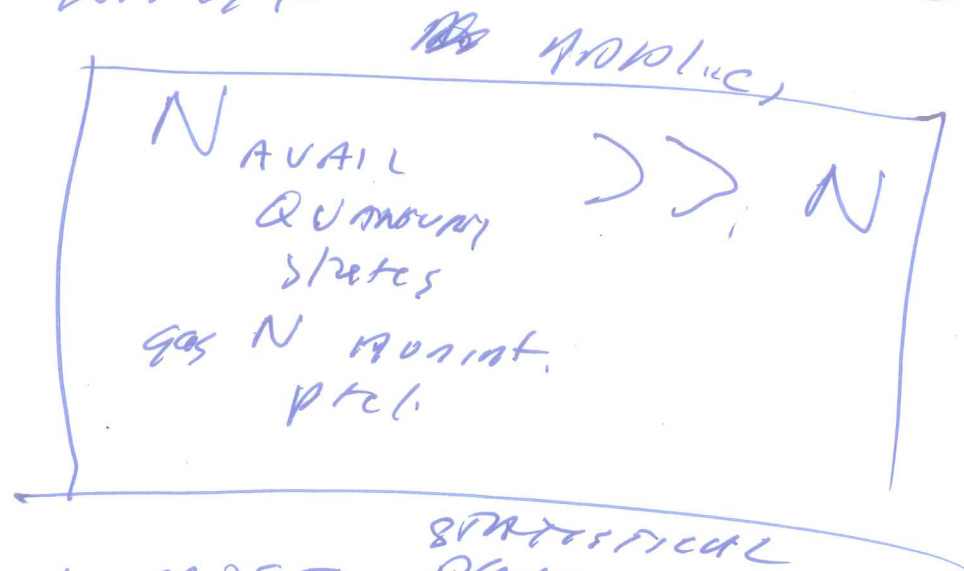 Applic,
N AVAIL >> N
Quantum
states
gas N nonint.
ptcl.
STATISTICAL